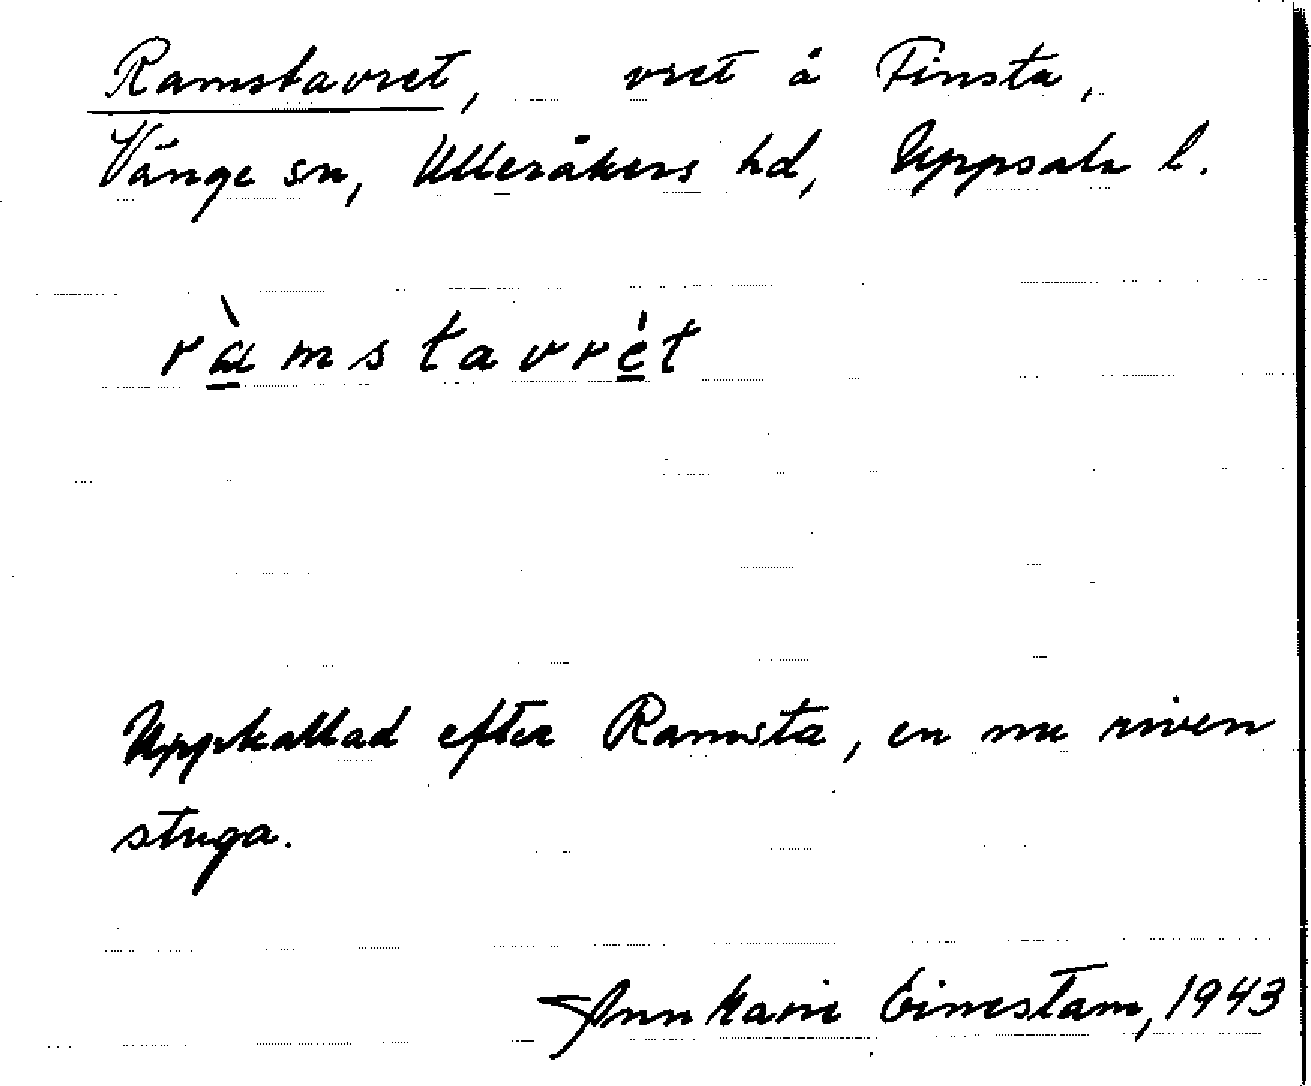 Ramstavret, vret å Finsta,
Vänge sn, Ulleråkers hd, Uppsala l.
ràmstavrét
Uppkallad efter Ramsta, en nu riven
stuga.
Ann Marie 1943